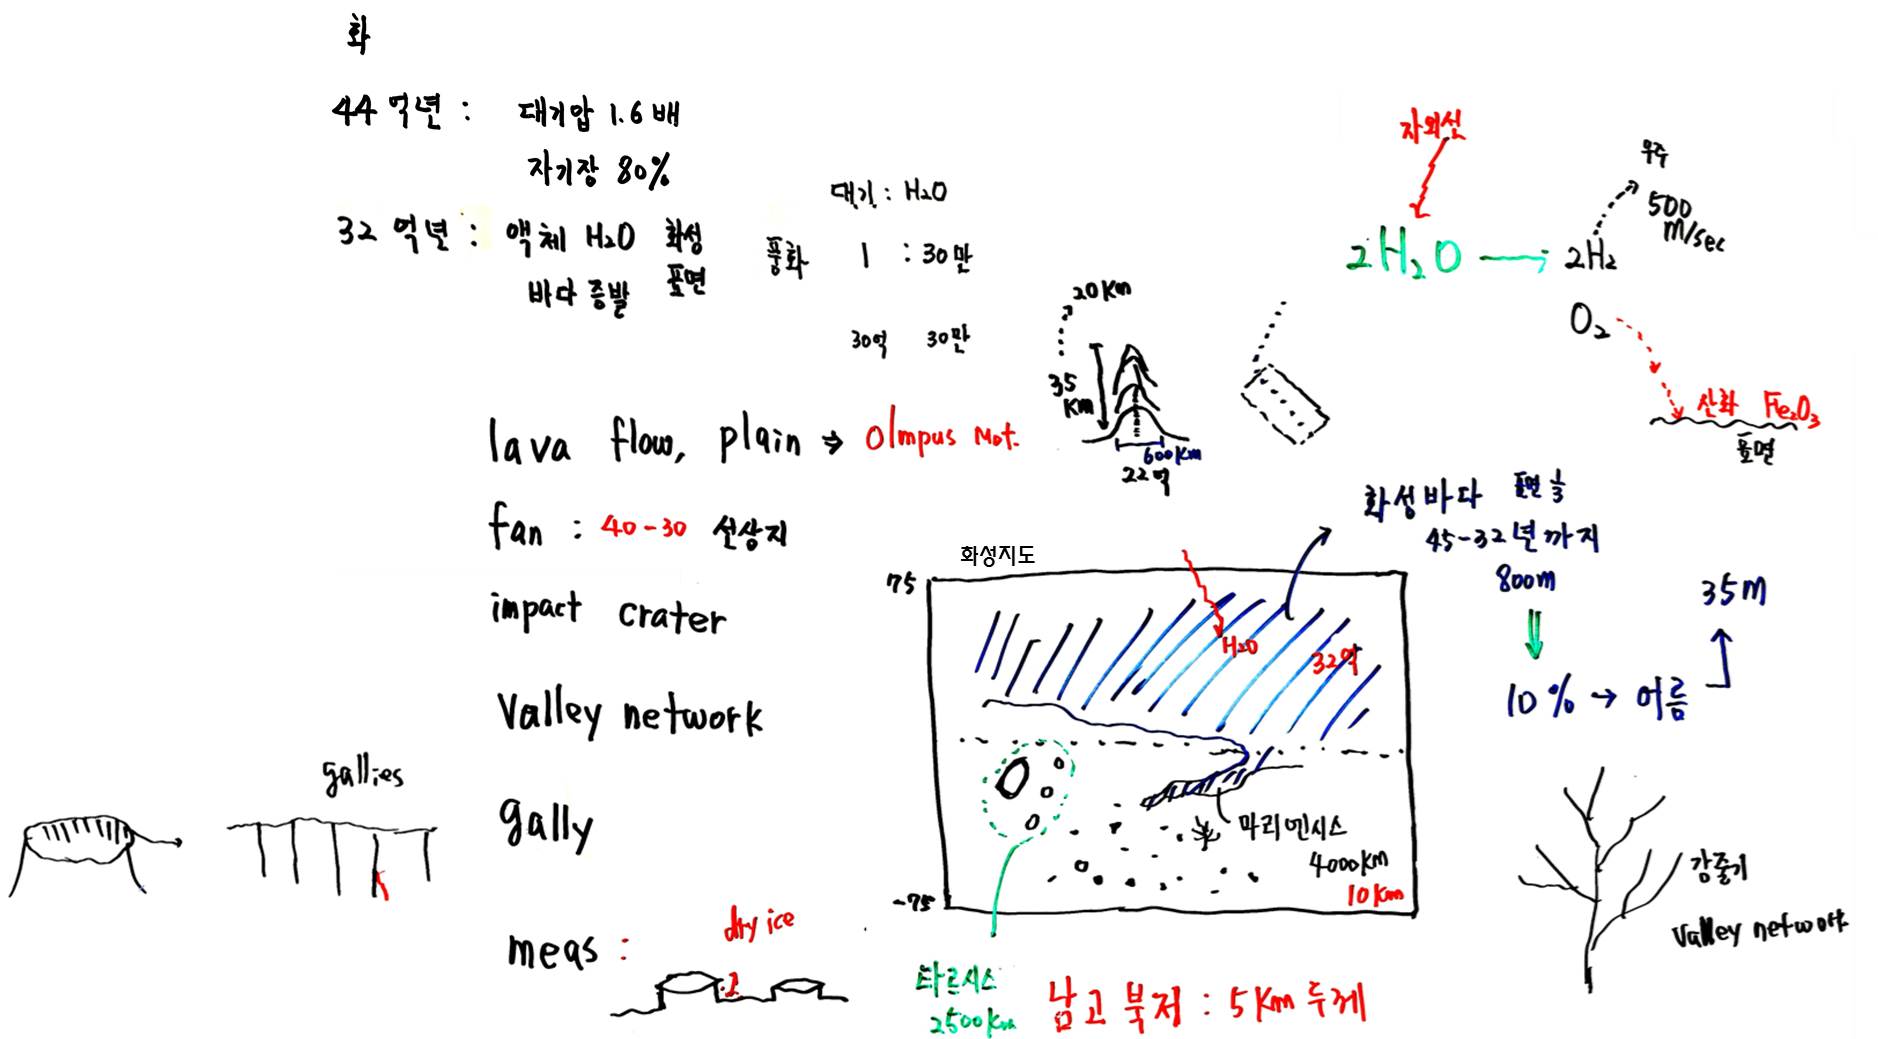 화
44 억년 : 대기압 1.6 배
자기장 80%
32 억년 : 액체 H₂O 화성
바다 증발 표면
대기 : H₂O
풍화 1 : 30만
30억 30만
자외선
2H₂O → 2H₂
우주
500
M/sec
O₂
산화 Fe₂O₃
표면
20Km
35
Km
600Km
22억
lava flow, plain → Olmpus Mot.
fan : 40-30 선상지
impact crater
Valley network
gally
gallies
meas :
dry ice
화성지도
75
-75
H₂O
32억
마리엔시스
4000Km
10Km
타르시스
2500Km
남고 북저 : 5Km 두께
화성바다 표면 1/3
45-32년까지
800m
10% → 어름
35M
강줄기
Valley network